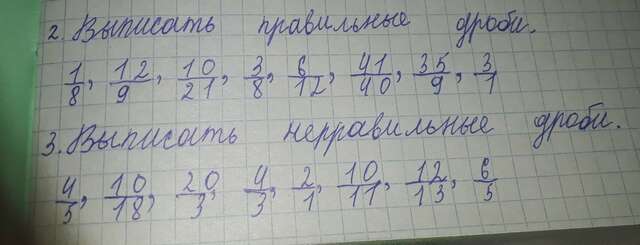 2. Выписать правильные дроби.
1/8, 12/9, 10/21, 3/8, 6/12, 41/40, 35/9, 3/1
3. Выписать неправильные дроби.
4/5, 10/18, 20/3, 4/3, 2/1, 10/11, 12/13, 6/5